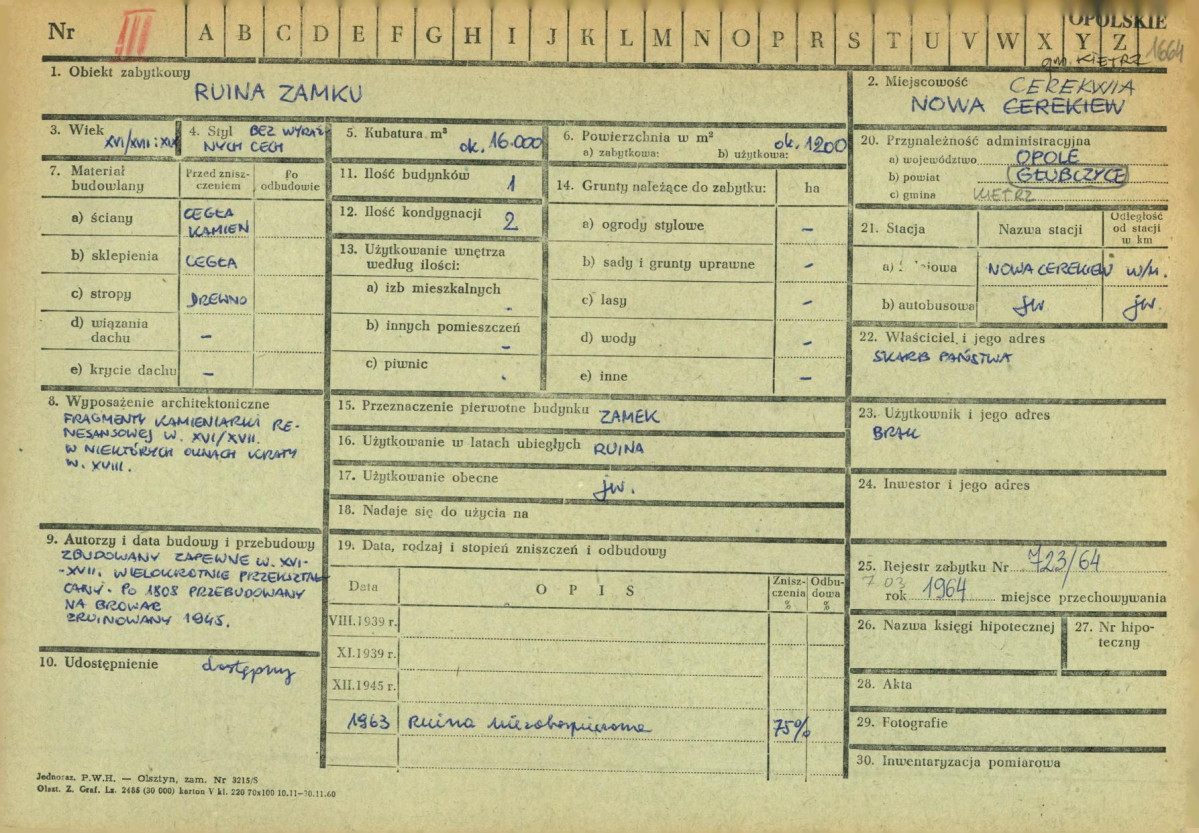 OPOLSKIE
Nr III A B C D E F G H I J K L M N O P R S T U V W X Y Z 1664
gm. KIETRZ
1. Obiekt zabytkowy
RUINA ZAMKU
2. Miejscowość CEREKWIA
NOWA CEREKIEW
3. Wiek
XVI/XVII i XIX
4. Styl BEZ WYRAŹ
NYCH CECH
5. Kubatura m³
ok. 16.000
6. Powierzchnia w m² ok. 1200
a) zabytkowa: b) użytkowa:
20. Przynależność administracyjna
a) województwo OPOLE
b) powiat GŁUBCZYCE
c) gmina KIETRZ
7. Materiał
budowlany
Przed znisz-
czeniem
Po
odbudowie
a) ściany CEGŁA
KAMIEŃ
b) sklepienia CEGŁA
c) stropy DREWNO
d) wiązania
dachu –
e) krycie dachu –
11. Ilość budynków 1
12. Ilość kondygnacji 2
13. Użytkowanie wnętrza
według ilości:
a) izb mieszkalnych -
b) innych pomieszczeń -
c) piwnic -
14. Grunty należące do zabytku: ha
a) ogrody stylowe –
b) sady i grunty uprawne –
c) lasy –
d) wody –
e) inne –
21. Stacja Nazwa stacji Odległość
od stacji
w km
a) NOWA CEREKIEW W/M.
b) autobusowa jw jw.
22. Właściciel i jego adres
SKARB PAŃSTWA
8. Wyposażenie architektoniczne
FRAGMENTY KAMIENIARKI RE-
NESANSOWEJ W. XVI/XVII.
W NIEKTÓRYCH OKNACH KRATY
W. XVIII.
15. Przeznaczenie pierwotne budynku ZAMEK
16. Użytkowanie w latach ubiegłych RUINA
17. Użytkowanie obecne jw.
18. Nadaje się do użycia na
23. Użytkownik i jego adres
BRAK
24. Inwestor i jego adres
9. Autorzy i data budowy i przebudowy
ZBUDOWANY ZAPEWNE W. XVI-
-XVII. WIELOKROTNIE PRZEKSZTAŁ
CANY. PO 1808 PRZEBUDOWANY
NA BROWAR
ZRUINOWANY 1945.
10. Udostępnienie dostępny
19. Data, rodzaj i stopień zniszczeń i odbudowy
Data O P I S Znisz-
czenia
% Odbu-
dowa
%
VIII.1939 r.
XI.1939 r.
XII.1945 r.
1963 Ruina niezabezpieczona 75%
25. Rejestr zabytku Nr 723/64
7 03
rok 1964 miejsce przechowywania
26. Nazwa księgi hipotecznej
27. Nr hipo-
teczny
28. Akta
29. Fotografie
30. Inwentaryzacja pomiarowa
Jednoraz. P.W.H. — Olsztyn, zam. Nr 3215/S
Olszt. Z. Graf. Lz. 2455 (30 000) karton V kl. 220 70x100 10.11—30.11.60